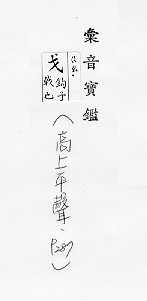 彙音寶鑑
戈
鈎子
戟也
(高上平聲、P289)